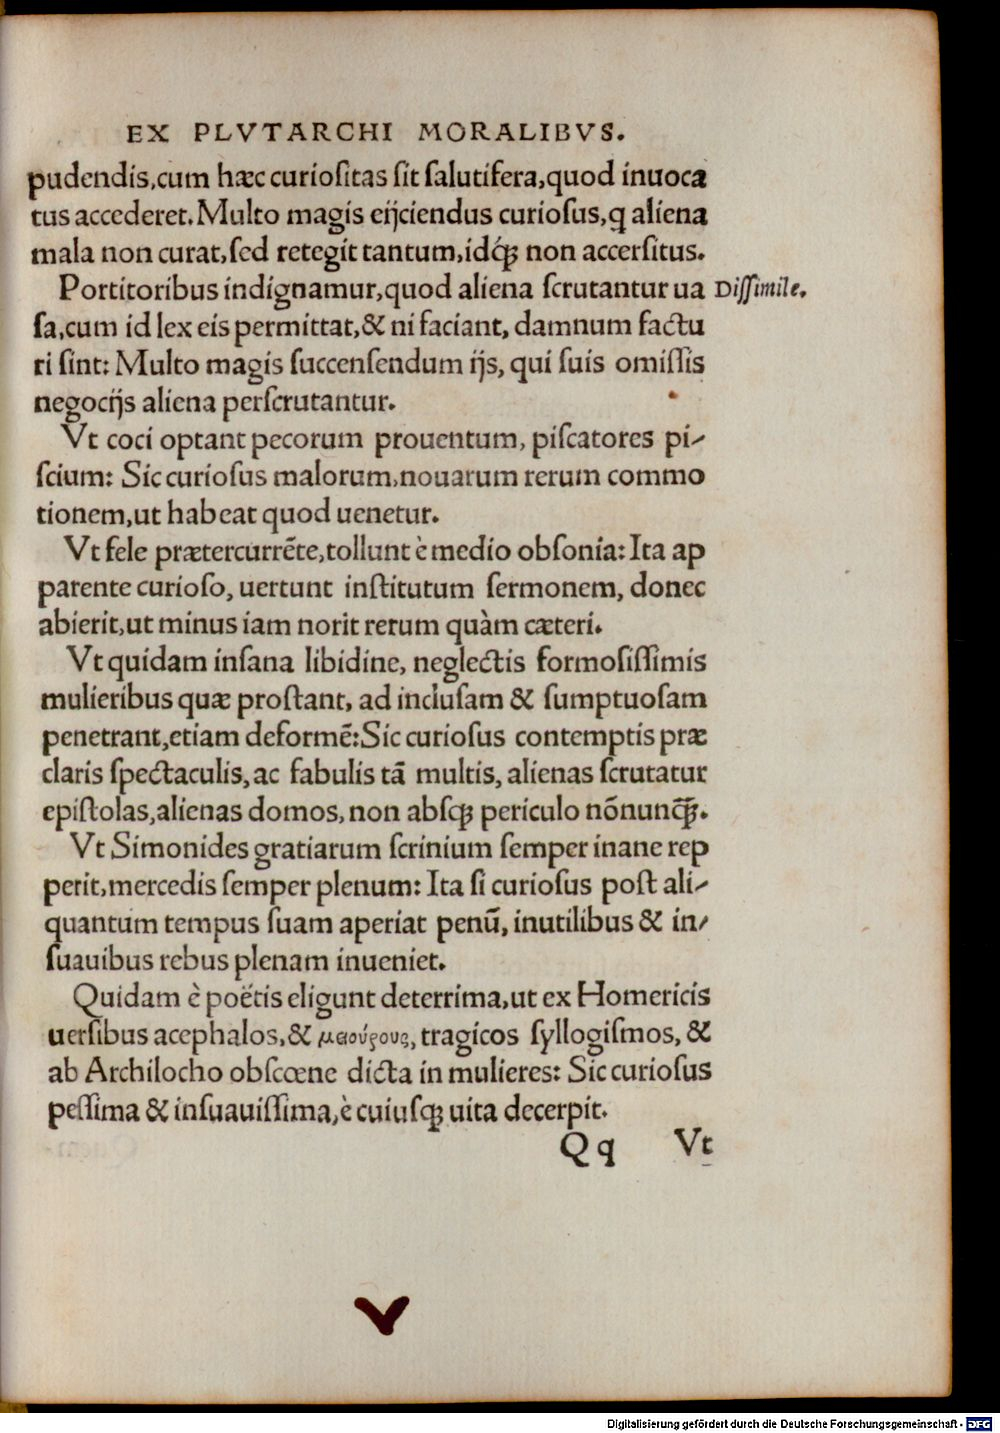 EX PLVTARCHI MORALIBVS.
pudendis,cum hæc curioſitas ſit ſalutifera,quod inuoca
tus accederet.Multo magis eijciendus curioſus,q aliena
mala non curat,ſed retegit tantum,idq́ꝫ non accerſitus.
Portitoribus indignamur,quod aliena ſcrutantur ua Diſſimile.
ſa,cum id lex eis permittat,& ni faciant, damnum factu
ri ſint: Multo magis ſuccenſendum ijs, qui ſuis omiſſis
negocijs aliena perſcrutantur.
Vt coci optant pecorum prouentum, piſcatores pi-
ſcium: Sic curioſus malorum,nouarum rerum commo
tionem,ut habeat quod uenetur.
Vt fele prætercurrẽte,tollunt è medio obſonia: Ita ap
parente curioſo, uertunt inſtitutum ſermonem, donec
abierit,ut minus iam norit rerum quàm cæteri.
Vt quidam inſana libidine, neglectis formoſiſſimis
mulieribus quæ proſtant, ad incluſam & ſumptuoſam
penetrant,etiam deformẽ:Sic curioſus contemptis præ
claris ſpectaculis, ac fabulis tã multis, alienas ſcrutatur
epiſtolas,alienas domos, non abſqꝫ periculo nõnunq̃ꝫ.
Vt Simonides gratiarum ſcrinium ſemper inane rep
perit,mercedis ſemper plenum: Ita ſi curioſus poſt ali-
quantum tempus ſuam aperiat penũ, inutilibus & in-
ſuauibus rebus plenam inueniet.
Quidam è poëtis eligunt deterrima,ut ex Homericis
uerſibus acephalos,& μειούρους, tragicos ſyllogiſmos, &
ab Archilocho obſcœne dicta in mulieres: Sic curioſus
peſſima & inſuauiſſima,è cuiuſqꝫ uita decerpit.
Qq Vt
Digitalisierung gefördert durch die Deutsche Forschungsgemeinschaft - DFG